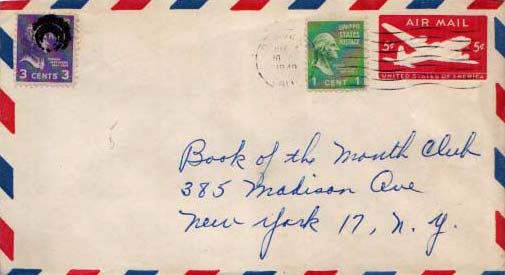 3 CENTS 3
UNITED
STATES
POSTAGE
1 CENT 1
AIR MAIL
5¢ 5¢
UNITED STATES OF AMERICA
Book of the Month Club
385 Madison Ave
New York 17, N. Y.